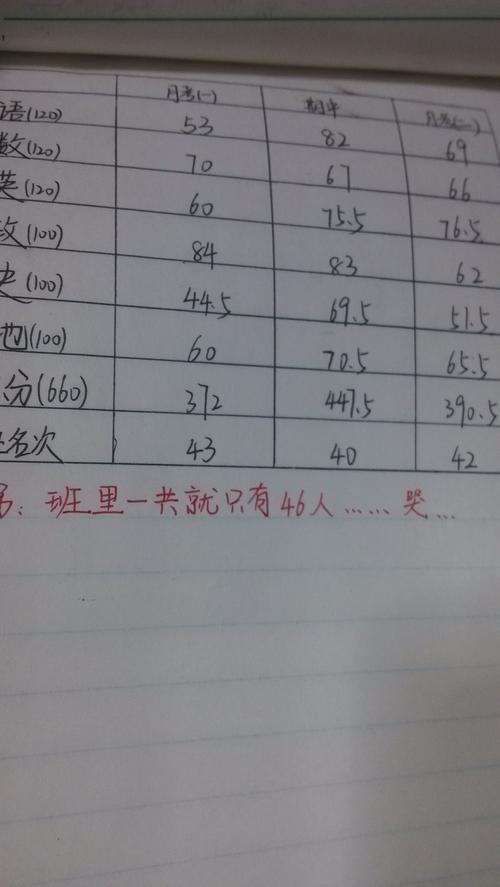 月考(一) 期中 月考(二)
语(120) 53 82 69
数(120) 70 67 66
英(120) 60 75.5 76.5
政(100) 84 83 62
史(100) 44.5 69.5 51.5
地(100) 60 70.5 65.5
分(660) 372 447.5 390.5
名次 43 40 42
班里一共就只有46人……哭…